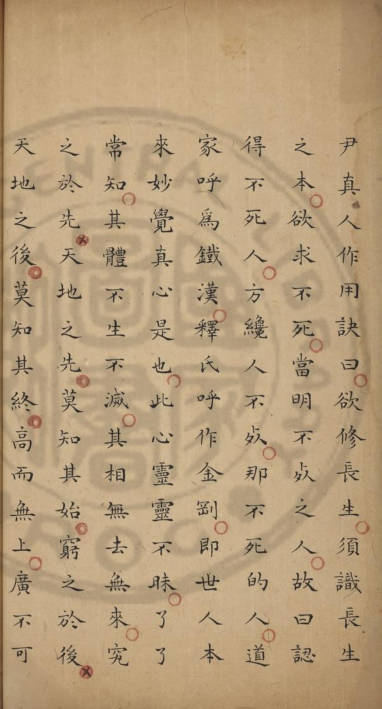 尹真人作用訣曰欲修長生須識長生
之本欲求不死當明不死之人故曰認
得不死人方纔人不死那不死的人道
家呼爲鐵漢釋氏呼作金剛即世人本
來妙覺真心是也此心靈靈不昧了了
常知其體不生不滅其相無去無來究
之於先天地之先莫知其始窮之於後
天地之後莫知其終高而無上廣不可